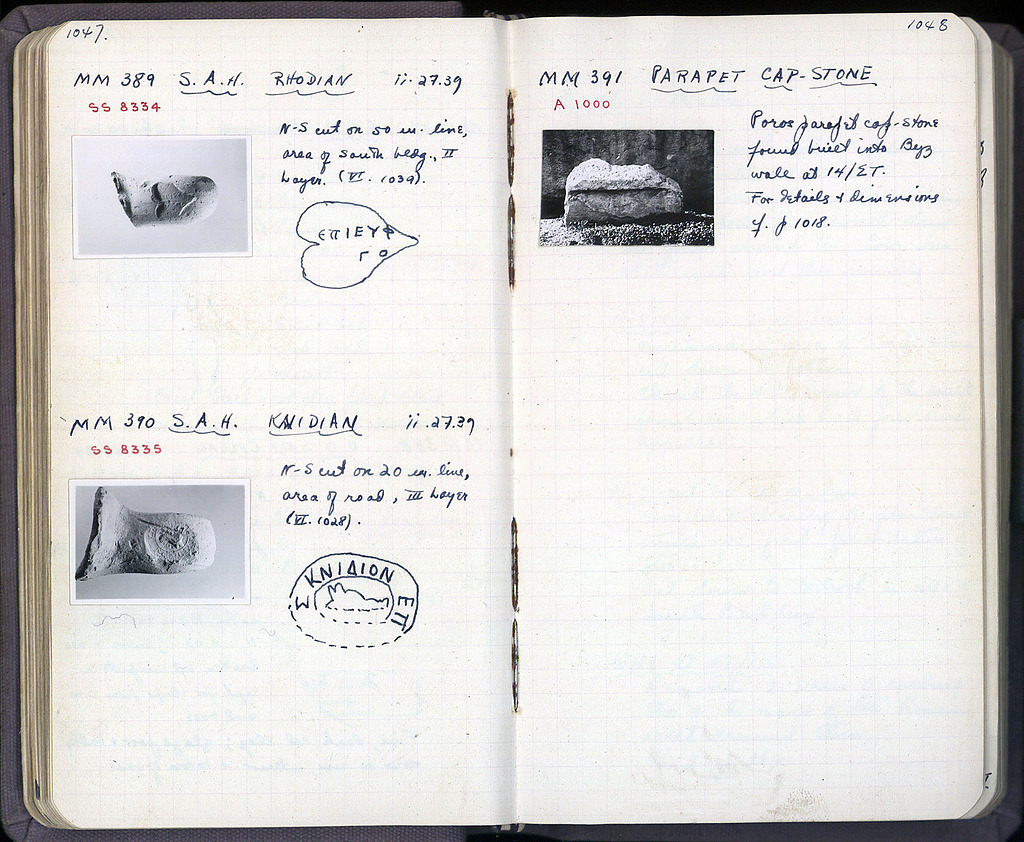 1047.
MM 389 S.A.H. RHODIAN ii.27.39
SS 8334
N-S cut on 50 m. line,
area of south bldg., II
Layer. (VI. 1039).
ΕΠΙΕΥΦ
ΓΟ
MM 390 S.A.H. KNIDIAN ii.27.39
SS 8335
N-S cut on 20 m. line,
area of road, III Layer
(VI. 1028).
Σ ΚΝΙΔΙΟΝ ΕΠ
1048
MM 391 PARAPET CAP-STONE
A 1000
Poros parapet cap-stone
found built into Byz
wall at 14/ΣΤ.
For details & dimensions
cf. p 1018.